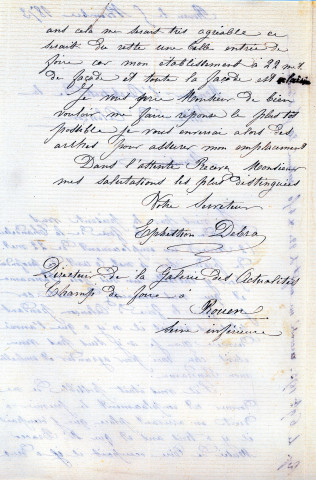 ans cela me serait très agréable ce
serait du reste une belle entrée de
foire car mon établissement à 22 mt
de façade et toute la façade est
Je vous prie Monsieur de bien
vouloir me faire réponse le plus tot
possible je vous enverai alors des
arrhes pour assurer mon emplacement
Dans l'attente Recevez Monsieur
mes salutations les plus distinguées
Votre Serviteur
Ephestion Debra
Directeur de la Galerie des Actualités
Champ de foire a
Rouen
Seine inférieure